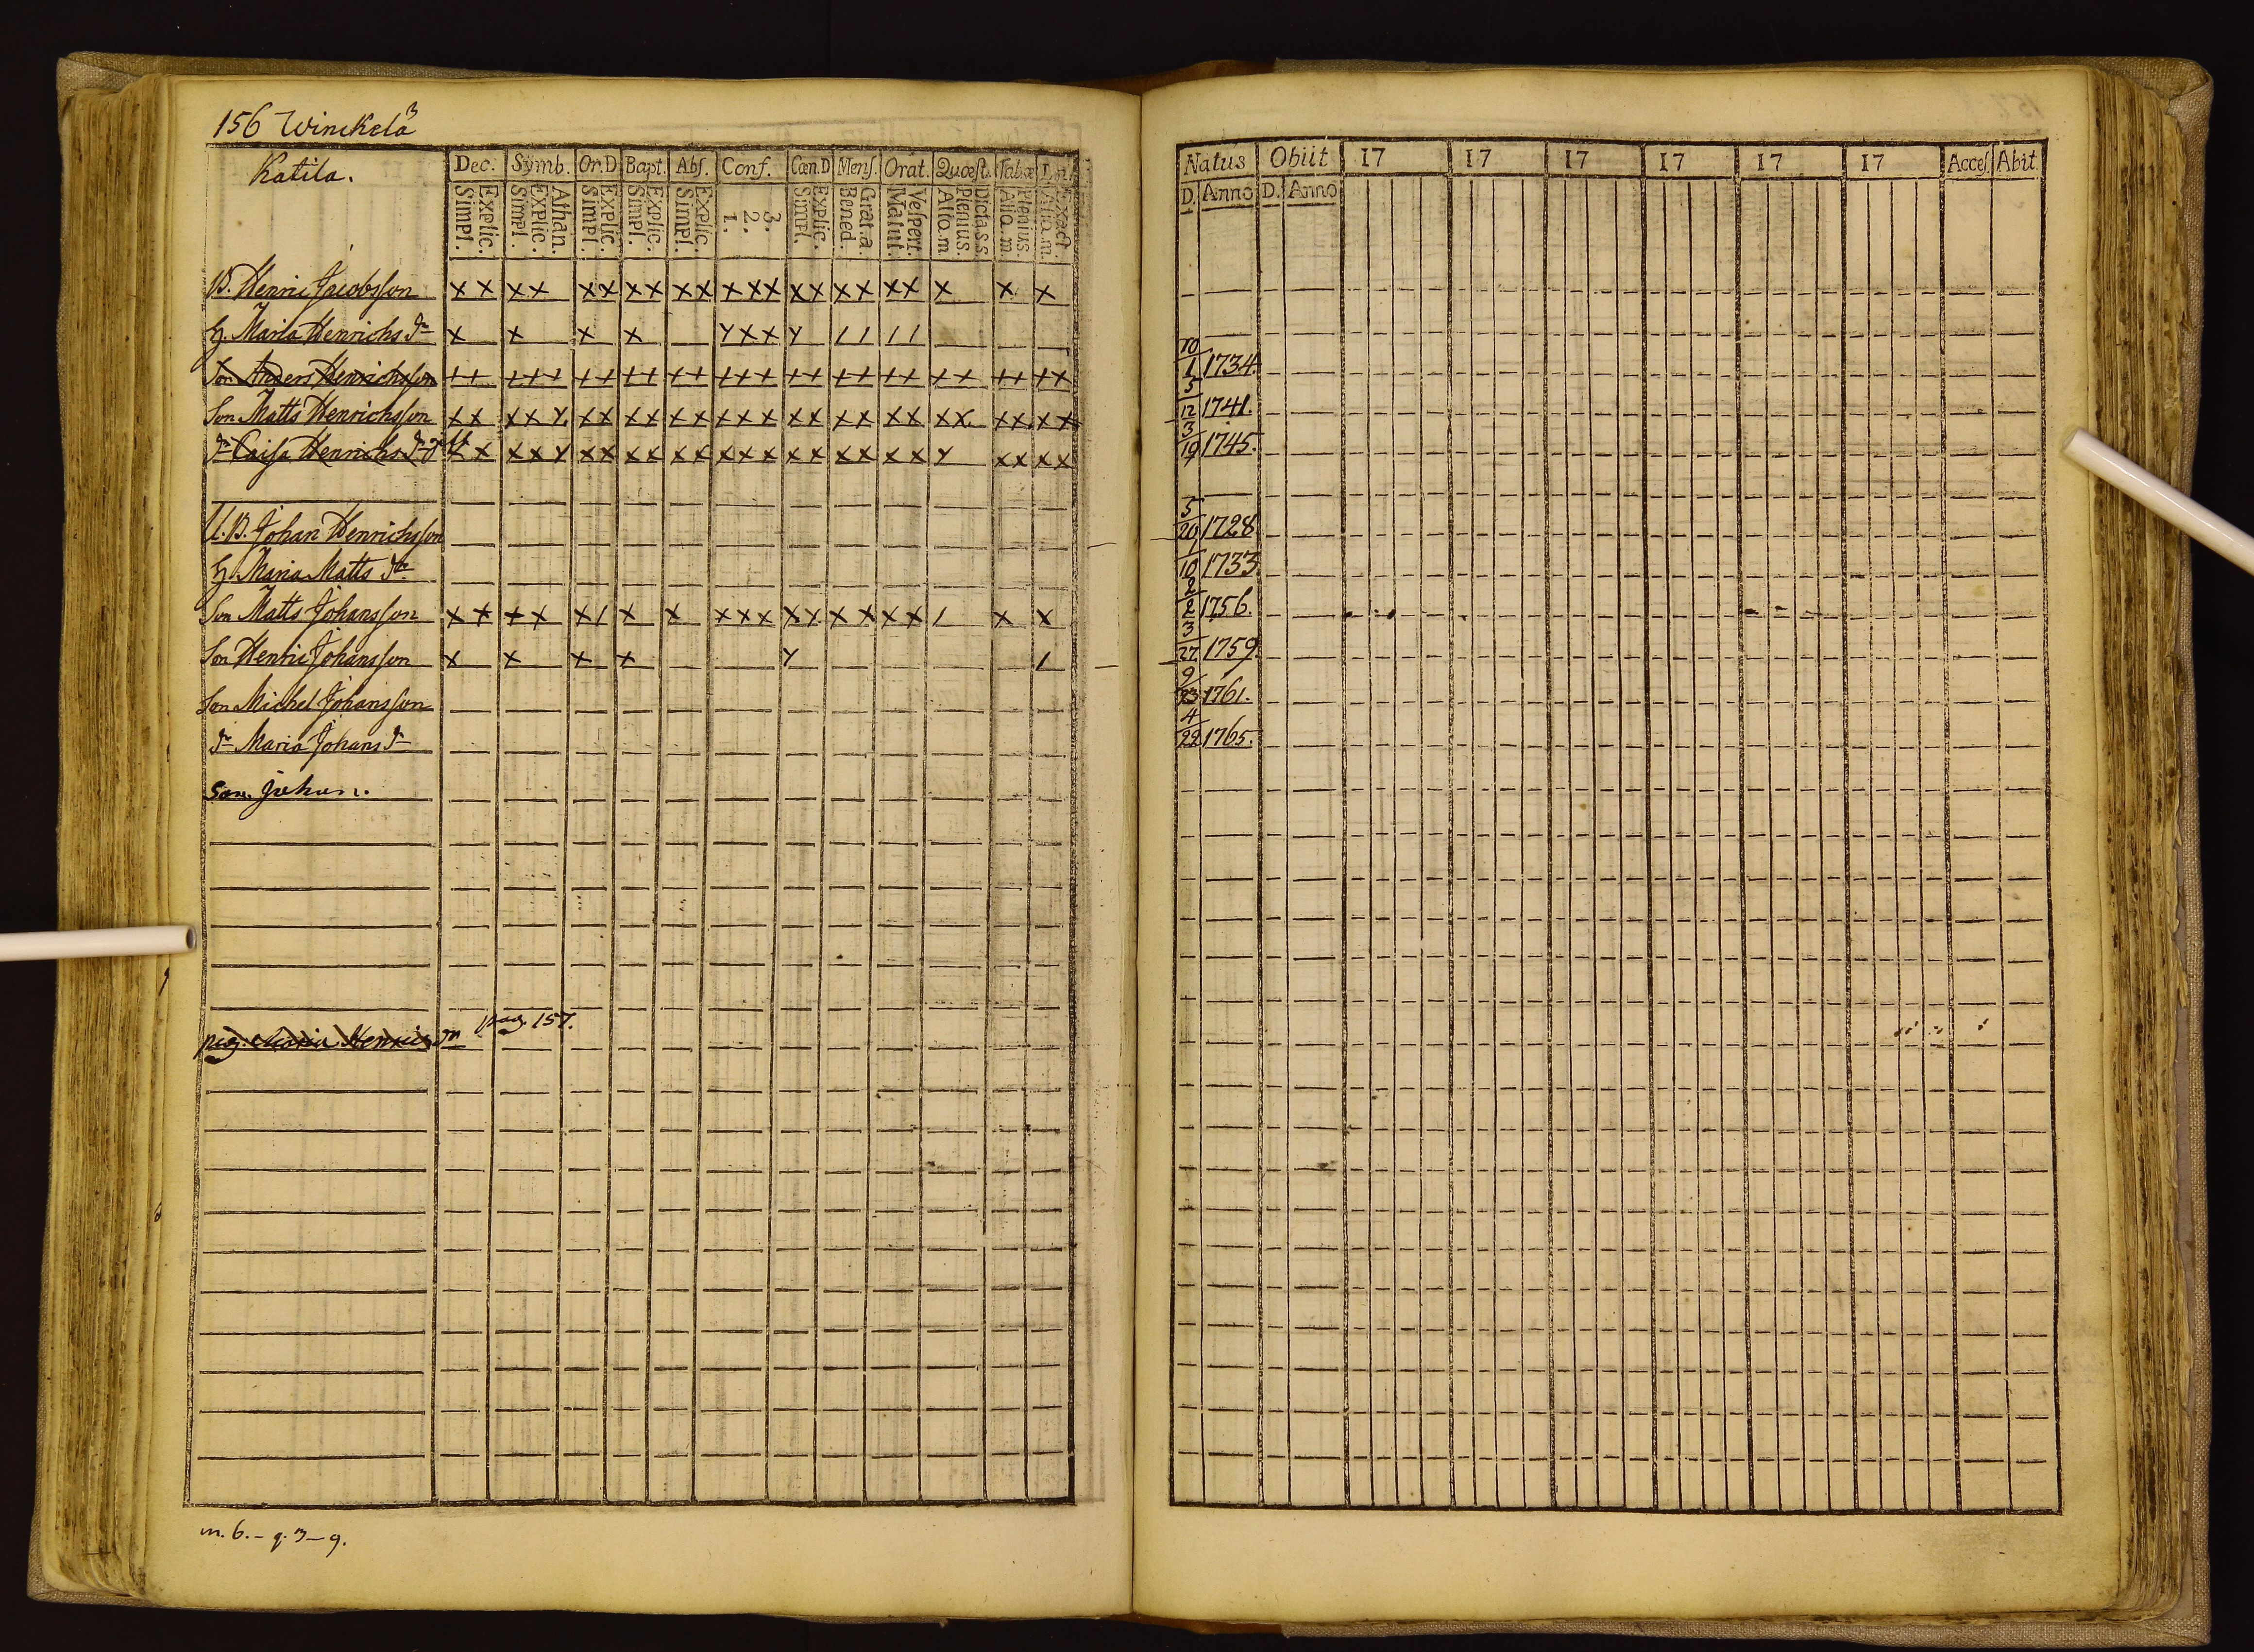 156 Winckelä
Katila.
Dec. Symb. Or.D Bapt. Abs. Conf. Cœn.D Mens. Orat. Quœst. Tabœ
Explic. Simpl. Athan. Explic. Simpl. Explic. Simpl. Explic. Simpl. Explic. Simpl. 3. 2. 1. Explic. Simpl. Grat.a. Bened. Vespert. Matut. Dicta.s.s. Plenius. Aliq.m Plenius. Aliq.m Exact. Aliq.m.
B. Henric Jacobsson x x x x x x x x x x x x x x x x x x x x x x
H. Maria Henrichs dr x x x x y x x y / / / /
Son Anders Henrichsson
Son Matts Henrichsson x x x x y x x x x x x x x x x x x x x x x x x x x x
dr Caisa Henrichs dr
U.B. Johan Henrichsson
H. Maria Matts dr
Son Matts Johansson x x x x x / x x x x x x x x x x x / x x
Son Henric Johansson x x x x y /
Son Michel Johansson
dr Maria Johans dr
Son Johan.
pig. Maria Henrics dr pag. 157.
m. 6. – q. 3 – 9.
Natus Obiit 17 17 17 17 17 17 Acces. Abit
D. Anno D. Anno
10/1 1734.
5/12 1741.
3/19 1745.
5/20 1728
1/10 1733
2/2 1756.
3/27 1759
9/23 1761.
4/22 1765.